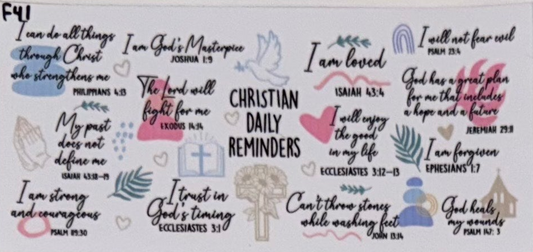 F41
I can do all things
through Christ
who strengthens me
PHILIPPIANS 4:13
I am God's Masterpiece
JOSHUA 1:9
I am loved
ISAIAH 43:4
I will not fear evil
PSALM 23:4
The Lord will
fight for me
EXODUS 14:14
CHRISTIAN
DAILY
REMINDERS
God has a great plan
for me that includes
a hope and a future
JEREMIAH 29:11
My past
does not
define me
ISAIAH 43:18-19
I will enjoy
the good
in my life
ECCLESIASTES 3:12-13
I am forgiven
EPHESIANS 1:7
I am strong
and courageous
PSALM 89:30
I trust in
God's timing
ECCLESIASTES 3:1
Can't throw stones
while washing feet
JOHN 13:14
God heals
my wounds
PSALM 147: 3